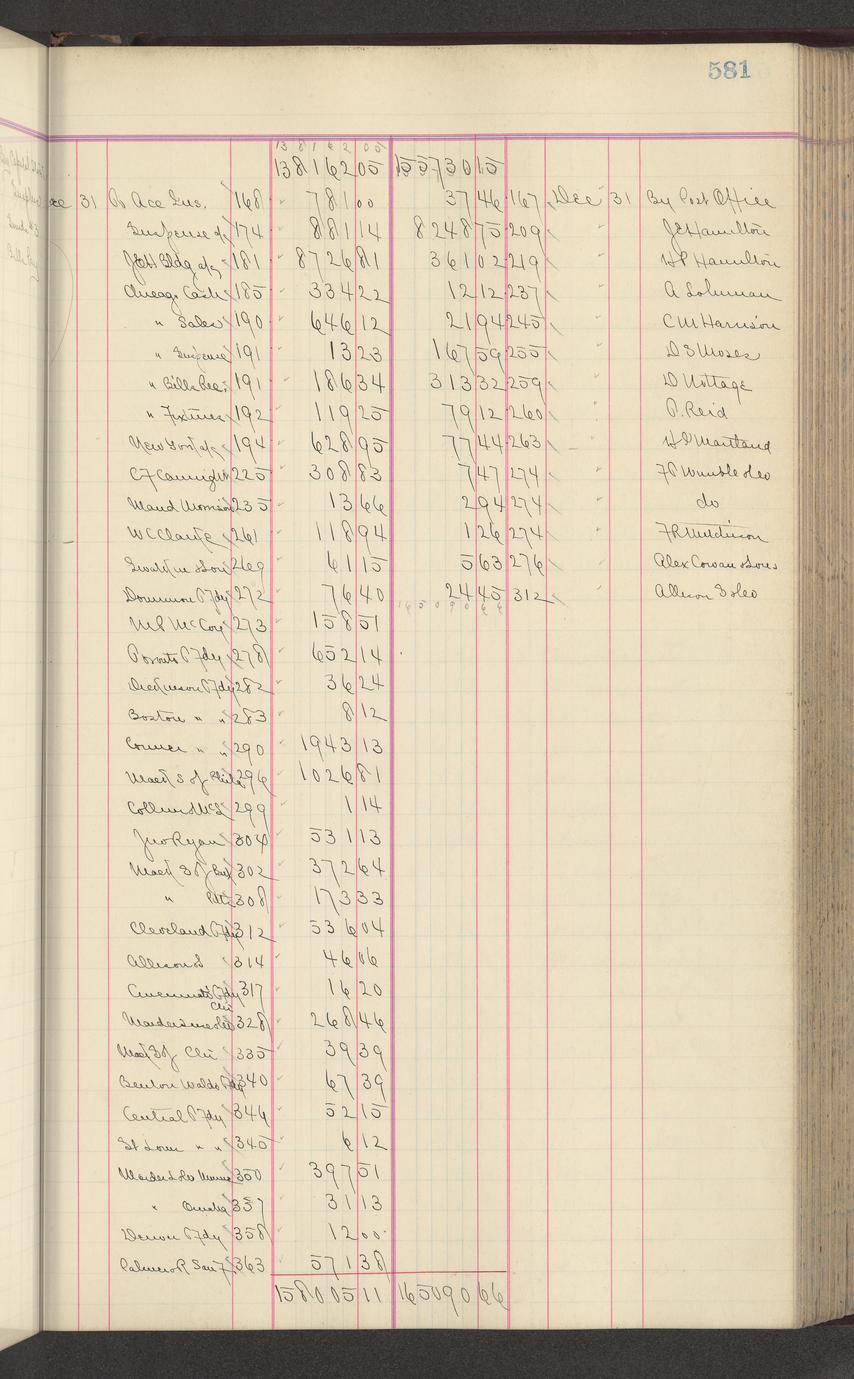 581
13 8 1 6 2 05
138162 05 155730 15
31 To Ace Gus. 168 781 00 37 46 167 Dec 31 By Post Office
Suspense a/c 174 881 14 8248 75 209 " JE Hamilton
JEH Bldg a/c 181 8726 81 361 02 219 " HP Hamilton
Chicago Cash 185 334 22 12 12 237 " A Lohman
" Sales 190 646 12 21 94 245 " CM Harrison
" Suspense 191 13 23 167 59 255 " DS Moses
" Bills Rec. 191 186 34 313 32 259 " D Nottage
" Fixtures 192 119 25 79 12 260 " P. Reid
New 194 628 95 77 44 263 " HP Maitland
CF 225 308 83 7 47 274 " FP Wumble &Co
Maud Morrison 235 13 66 2 94 274 " do
WC Clarke 261 118 94 1 26 274 " FR Hutchison
269 61 15 5 63 276 " Alex Cowan &Sons
Dominion Fdy 272 76 40 24 45 312 " Allison S &Co
16 5 0 9 0 6 6
MP McCoy 273 158 51
Toronto Fdy 278 652 14
Dickinson Fdy 282 36 24
Boston " " 283 8 12
Conner " " 290 1943 13
Mack S of Phila 296 1026 81
Collins &McL 299 1 14
Jno Ryan 304 531 13
Mack S of Buf 302 372 64
" Pitts 308 173 33
Cleveland Fdy 312 536 04
Allison S 314 46 06
Cincinnati Fdy 317 16 20
Chi
Marder Luse &Co 328 268 46
Mack S of Chi 335 39 39
Benton Waldo Fdy 340 67 39
Central Fdy 346 52 15
St Louis " " 345 6 12
Marder L &Co Minne 350 397 51
" Omaha 357 31 13
Denver Fdy 358 12 00
Palmer &R San F. 363 571 38
158005 11 165090 66